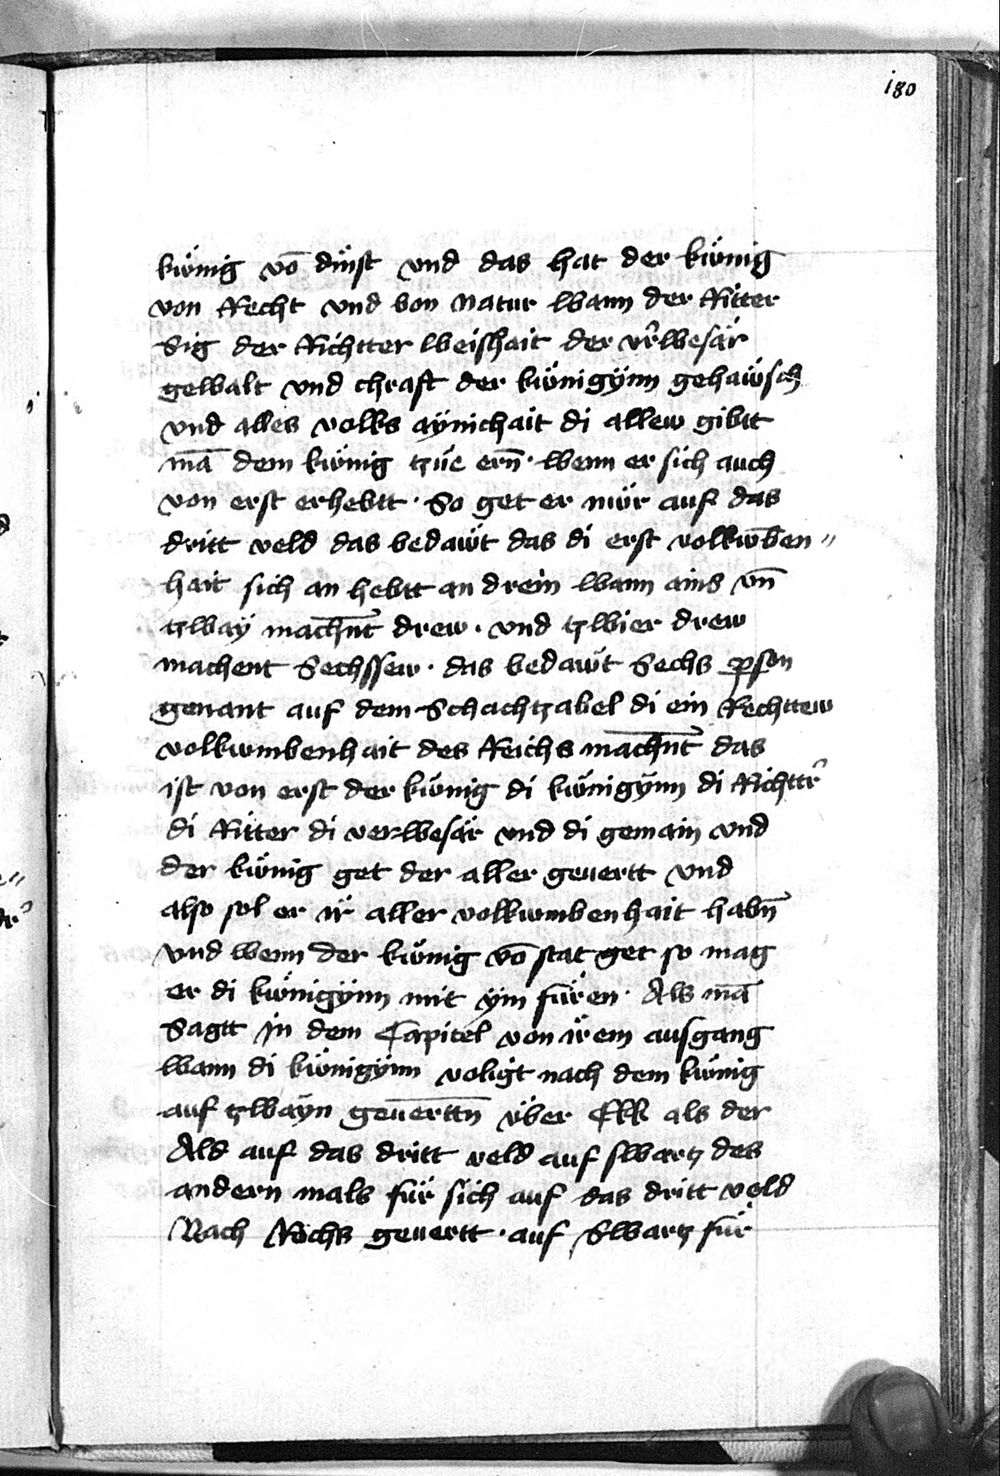 180
kűnig vō dinst vnd das hat der kűnig
von Recht vnd von natur wann der Ritter
Sig der Richtter weishait der vr̄wesär
gewalt vnd chraft der kűnigÿnn gehaẅsch
vnd alles volks aÿnichait di allew gibtt
mā dem kűnig tzúe ern̄ · wenn er sich auch
von erst erhebtt · So get er nűr auf das
dritt veld das bedaẅt das di erst volkwōben〃
hait sich an hebtt an drein wann ains vn̄
tzwaÿ mach̄nt drew · vnd tzwier drew
machent Sechssew · das bedaẅt Sechs ꝑson
genant auf dem Schachtzabel di ein Rechttew
volkwmbenhait des Reichs mach̄nt das
ist von erst der kűnig di kűnigÿnn di Richttr̄
di Ritter di verwesär vnd di gemain vnd
der kűnig get der aller geuertt vnd
also sol er ir̈ aller volkwmbenhait habn̄
vnd wenn der kűnig vō stat get so mag
er di kűnigÿnn mit ÿm fűren · Als mā
Sagtt in dem Capitel von ir̈em ausgang
wann di kűnigÿnn voligt nach dem kűnig
auf tzwaÿn geuerttn̄ über Ekk als der
Ald auf das dritt veld auf swartz des
andern mals fűr sich auf das dritt veld
Nach Rochs geuertt · auf Swartz fűr